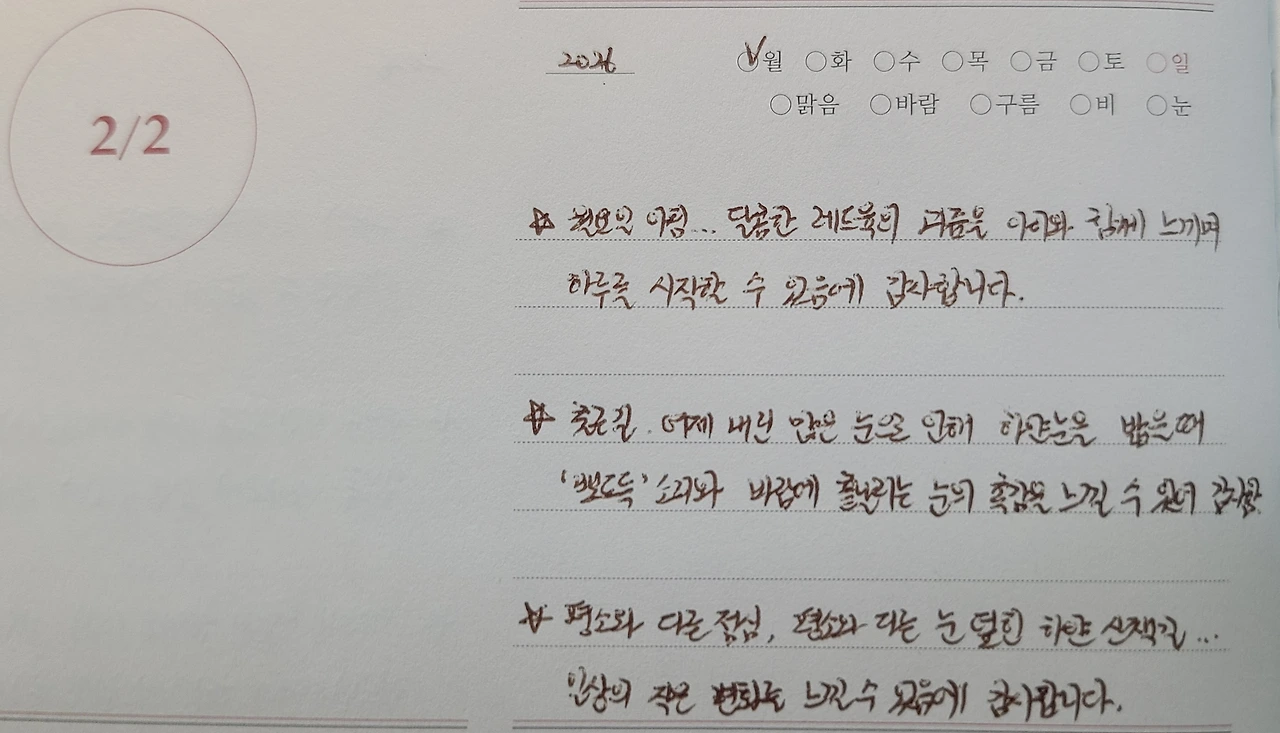 2/2
2026 월 화 수 목 금 토 일
맑음 바람 구름 비 눈
월요일 아침... 달콤한 레드육의 과즙을 아이와 함께 느끼며
하루를 시작할 수 있음에 감사합니다.
출근길. 어제 내린 많은 눈으로 인해 하얀눈을 밟을때
'뽀도득' 소리와 바람에 흩날리는 눈의 촉감을 느낄 수 있어 감사함.
평소와 다른 점심, 평소와 다른 눈 덮힌 하얀 산책길...
일상의 작은 변화를 느낄 수 있음에 감사합니다.